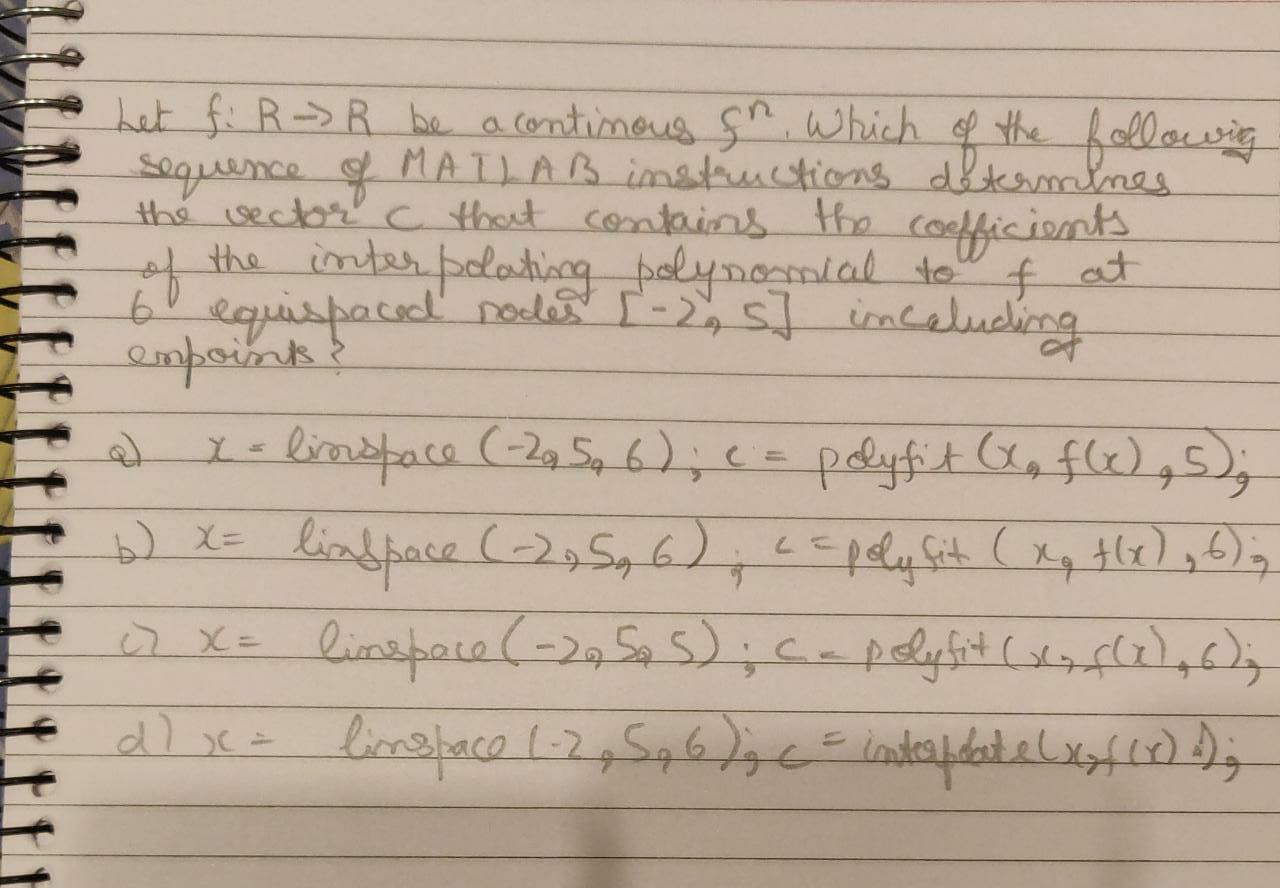 Let f: R → R be a continous fⁿ. Which of the followig
sequence of MATLAB instructions determines
the vector c that contains the coefficients
of the interpolating polynomial to f at
6 equispaced nodes [-2, 5] inceluding
enpoints?
a) x = linspace (-2, 5, 6); c = polyfit (x, f(x), 5);
b) x = linspace (-2, 5, 6); c = polyfit (x, f(x), 6);
c) x = linespace (-2, 5, 5); c = polyfit (x, f(x), 6);
d) x = linspace (-2, 5, 6); c = interpolate (x, f(x));